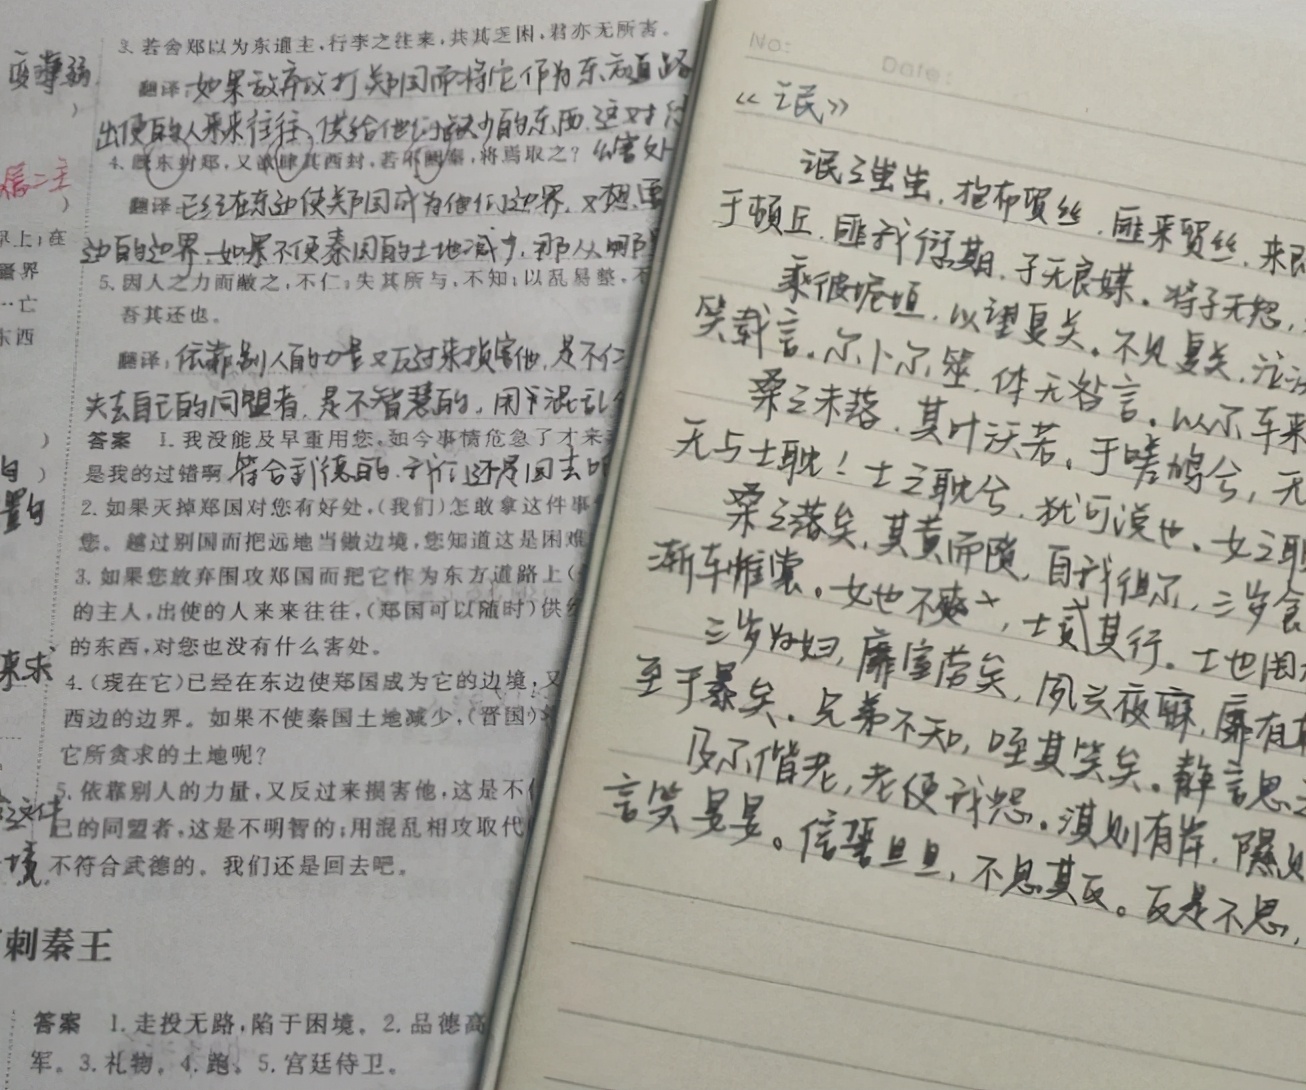 变薄弱
3. 若舍郑以为东道主,行李之往来,共其乏困,君亦无所害。
翻译:如果放弃攻打郑国而将它作为东方道路
出使的人来来往往,供给他们缺少的东西.这对
4. 既东封郑,又欲肆其西封,若不阙秦,将焉取之?
翻译:已经在东边使郑国成为他们边界,又想
边的边界.如果不使秦国的土地减少,那从哪
5. 因人之力而敝之,不仁;失其所与,不知;以乱易整,不
吾其还也。
翻译:依靠别人的力量又反过来损害他,是不仁
失去自己的同盟者,是不智慧的,用混乱
答案 1. 我没能及早重用您,如今事情危急了才来
是我的过错啊
符合武德的.我们还是回去吧
2. 如果灭掉郑国对您有好处,(我们)怎敢拿这件事
您。越过别国而把远地当做边境,您知道这是困难
3. 如果您放弃围攻郑国而把它作为东方道路上(
的主人,出使的人来来往往,(郑国可以随时)供给
的东西,对您也没有什么害处。
4. (现在它)已经在东边使郑国成为它的边境,又
西边的边界。如果不使秦国土地减少,(晋国)
它所贪求的土地呢?
5. 依靠别人的力量,又反过来损害他,这是不
己的同盟者,这是不明智的;用混乱相攻取代
不符合武德的。我们还是回去吧。
刺秦王
答案 1. 走投无路,陷于困境。2. 品德高
军。3. 礼物。4. 跑。5. 宫廷侍卫。
No:
Date:
《氓》
氓之蚩蚩,抱布贸丝.匪来贸丝,来
于顿丘.匪我愆期,子无良媒。将子无怒,
乘彼垝垣,以望复关。不见复关,泣
笑载言。尔卜尔筮,体无咎言。以尔车来
桑之未落,其叶沃若。于嗟鸠兮,无
无与士耽!士之耽兮,犹可说也。女之耽
桑之落矣,其黄而陨,自我徂尔,三岁食
渐车帷裳。女也不爽,士贰其行。士也罔
三岁为妇,靡室劳矣,夙兴夜寐,靡有
至于暴矣。兄弟不知,咥其笑矣。静言思之
及尔偕老,老使我怨。淇则有岸,隰则
言笑晏晏。信誓旦旦,不思其反。反是不思,